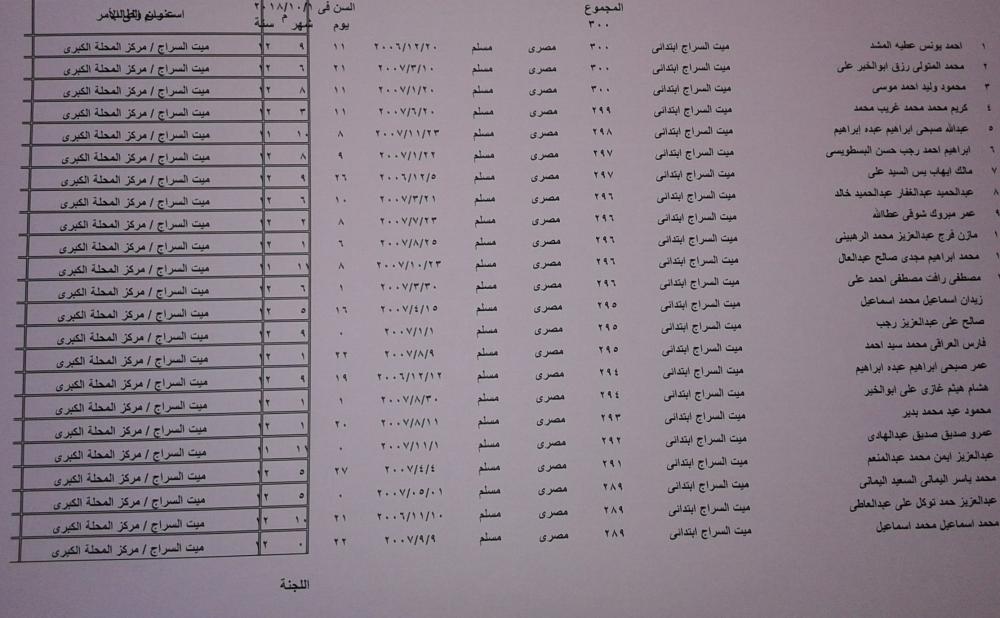 المجموع السن فى ٢٠١٨/١٠/١
٣٠٠ يوم شهر سنة
١ احمد يونس عطيه المشد ميت السراج ابتدائى ٣٠٠ مصرى مسلم ٢٠٠٦/١٢/٢٠ ١١ ٩ ميت السراج / مركز المحلة الكبرى
٢ محمد المتولى رزق ابوالخير على ميت السراج ابتدائى ٣٠٠ مصرى مسلم ٢٠٠٧/٣/١٠ ٢١ ٦ ميت السراج / مركز المحلة الكبرى
٣ محمود وليد احمد موسى ميت السراج ابتدائى ٣٠٠ مصرى مسلم ٢٠٠٧/١/٢٠ ١١ ٨ ميت السراج / مركز المحلة الكبرى
٤ كريم محمد محمد غريب محمد ميت السراج ابتدائى ٢٩٩ مصرى مسلم ٢٠٠٧/٦/٢٠ ١١ ٣ ميت السراج / مركز المحلة الكبرى
٥ عبدالله صبحى ابراهيم عبده إبراهيم ميت السراج ابتدائى ٢٩٨ مصرى مسلم ٢٠٠٧/١١/٢٣ ٨ ١٠ ميت السراج / مركز المحلة الكبرى
٦ ابراهيم احمد رجب حسن البسطويسى ميت السراج ابتدائى ٢٩٧ مصرى مسلم ٢٠٠٧/١/٢٢ ٩ ٨ ميت السراج / مركز المحلة الكبرى
٧ مالك ايهاب يس السيد على ميت السراج ابتدائى ٢٩٧ مصرى مسلم ٢٠٠٦/١٢/٥ ٢٦ ٩ ميت السراج / مركز المحلة الكبرى
٨ عبدالحميد عبدالغفار عبدالحميد خالد ميت السراج ابتدائى ٢٩٦ مصرى مسلم ٢٠٠٧/٣/٢١ ١٠ ٦ ميت السراج / مركز المحلة الكبرى
٩ عمر مبروك شوقى عطاالله ميت السراج ابتدائى ٢٩٦ مصرى مسلم ٢٠٠٧/٧/٢٣ ٨ ٢ ميت السراج / مركز المحلة الكبرى
مازن فرج عبدالعزيز محمد الرهبينى ميت السراج ابتدائى ٢٩٦ مصرى مسلم ٢٠٠٧/٨/٢٥ ٦ ١ ميت السراج / مركز المحلة الكبرى
محمد ابراهيم مجدى صالح عبدالعال ميت السراج ابتدائى ٢٩٦ مصرى مسلم ٢٠٠٧/١٠/٢٣ ٨ ١١ ميت السراج / مركز المحلة الكبرى
مصطفى رافت مصطفى احمد على ميت السراج ابتدائى ٢٩٦ مصرى مسلم ٢٠٠٧/٣/٣٠ ١ ٦ ميت السراج / مركز المحلة الكبرى
زيدان اسماعيل محمد اسماعيل ميت السراج ابتدائى ٢٩٥ مصرى مسلم ٢٠٠٧/٤/١٥ ١٦ ٥ ميت السراج / مركز المحلة الكبرى
صالح على عبدالعزيز رجب ميت السراج ابتدائى ٢٩٥ مصرى مسلم ٢٠٠٧/١/١ ٠ ٩ ميت السراج / مركز المحلة الكبرى
فارس العراقى محمد سيد احمد ميت السراج ابتدائى ٢٩٥ مصرى مسلم ٢٠٠٧/٨/٩ ٢٢ ١ ميت السراج / مركز المحلة الكبرى
عمر صبحى ابراهيم عبده ابراهيم ميت السراج ابتدائى ٢٩٤ مصرى مسلم ٢٠٠٦/١٢/١٢ ١٩ ٩ ميت السراج / مركز المحلة الكبرى
هشام هيثم غازى على ابوالخير ميت السراج ابتدائى ٢٩٤ مصرى مسلم ٢٠٠٧/٨/٣٠ ١ ١ ميت السراج / مركز المحلة الكبرى
محمود عيد محمد بدير ميت السراج ابتدائى ٢٩٣ مصرى مسلم ٢٠٠٧/٨/١١ ٢٠ ١ ميت السراج / مركز المحلة الكبرى
عمرو صديق صديق عبدالهادى ميت السراج ابتدائى ٢٩٢ مصرى مسلم ٢٠٠٧/١١/١ ٠ ١١ ميت السراج / مركز المحلة الكبرى
عبدالعزيز ايمن محمد عبدالمنعم ميت السراج ابتدائى ٢٩١ مصرى مسلم ٢٠٠٧/٤/٤ ٢٧ ٥ ميت السراج / مركز المحلة الكبرى
محمد ياسر اليمانى السعيد اليمانى ميت السراج ابتدائى ٢٨٩ مصرى مسلم ٢٠٠٧/٠٥/٠١ ٠ ٥ ميت السراج / مركز المحلة الكبرى
عبدالعزيز حمد توكل على عبدالعاطى ميت السراج ابتدائى ٢٨٩ مصرى مسلم ٢٠٠٦/١١/١٠ ٢١ ١٠ ميت السراج / مركز المحلة الكبرى
محمد اسماعيل محمد اسماعيل ميت السراج ابتدائى ٢٨٩ مصرى مسلم ٢٠٠٧/٩/٩ ٢٢ ٠ ميت السراج / مركز المحلة الكبرى
اللجنة